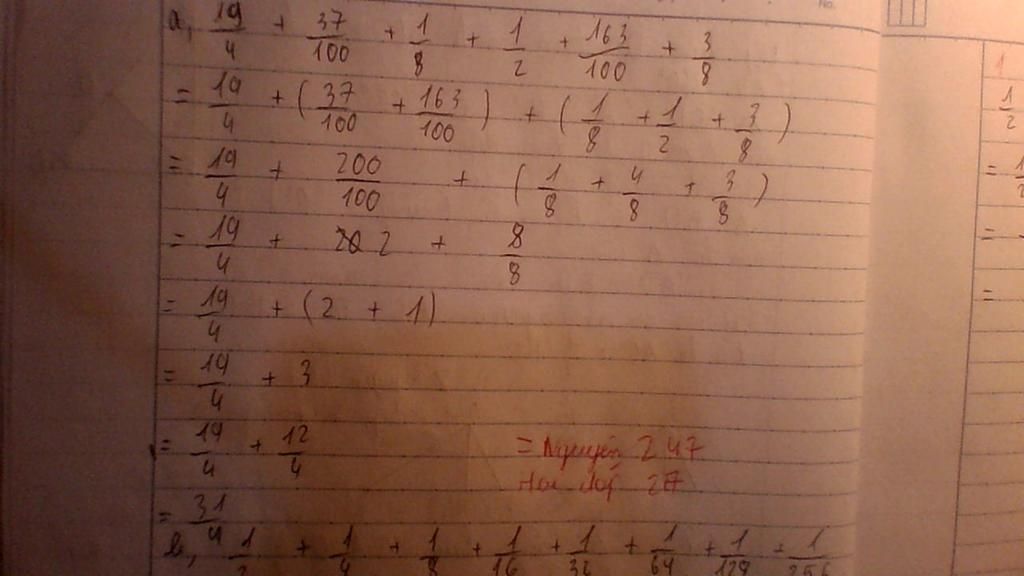 a, 19/4 + 37/100 + 1/8 + 1/2 + 163/100 + 3/8
= 19/4 + (37/100 + 163/100) + (1/8 + 1/2 + 3/8)
= 19/4 + 200/100 + (1/8 + 4/8 + 3/8)
= 19/4 + 2 + 8/8
= 19/4 + (2 + 1)
= 19/4 + 3
= 19/4 + 12/4
= Nguyễn 247
= 31/4
b, 1/2 + 1/4 + 1/8 + 1/16 + 1/32 + 1/64 + 1/128 + 1/256
1
1/2
=
=
=